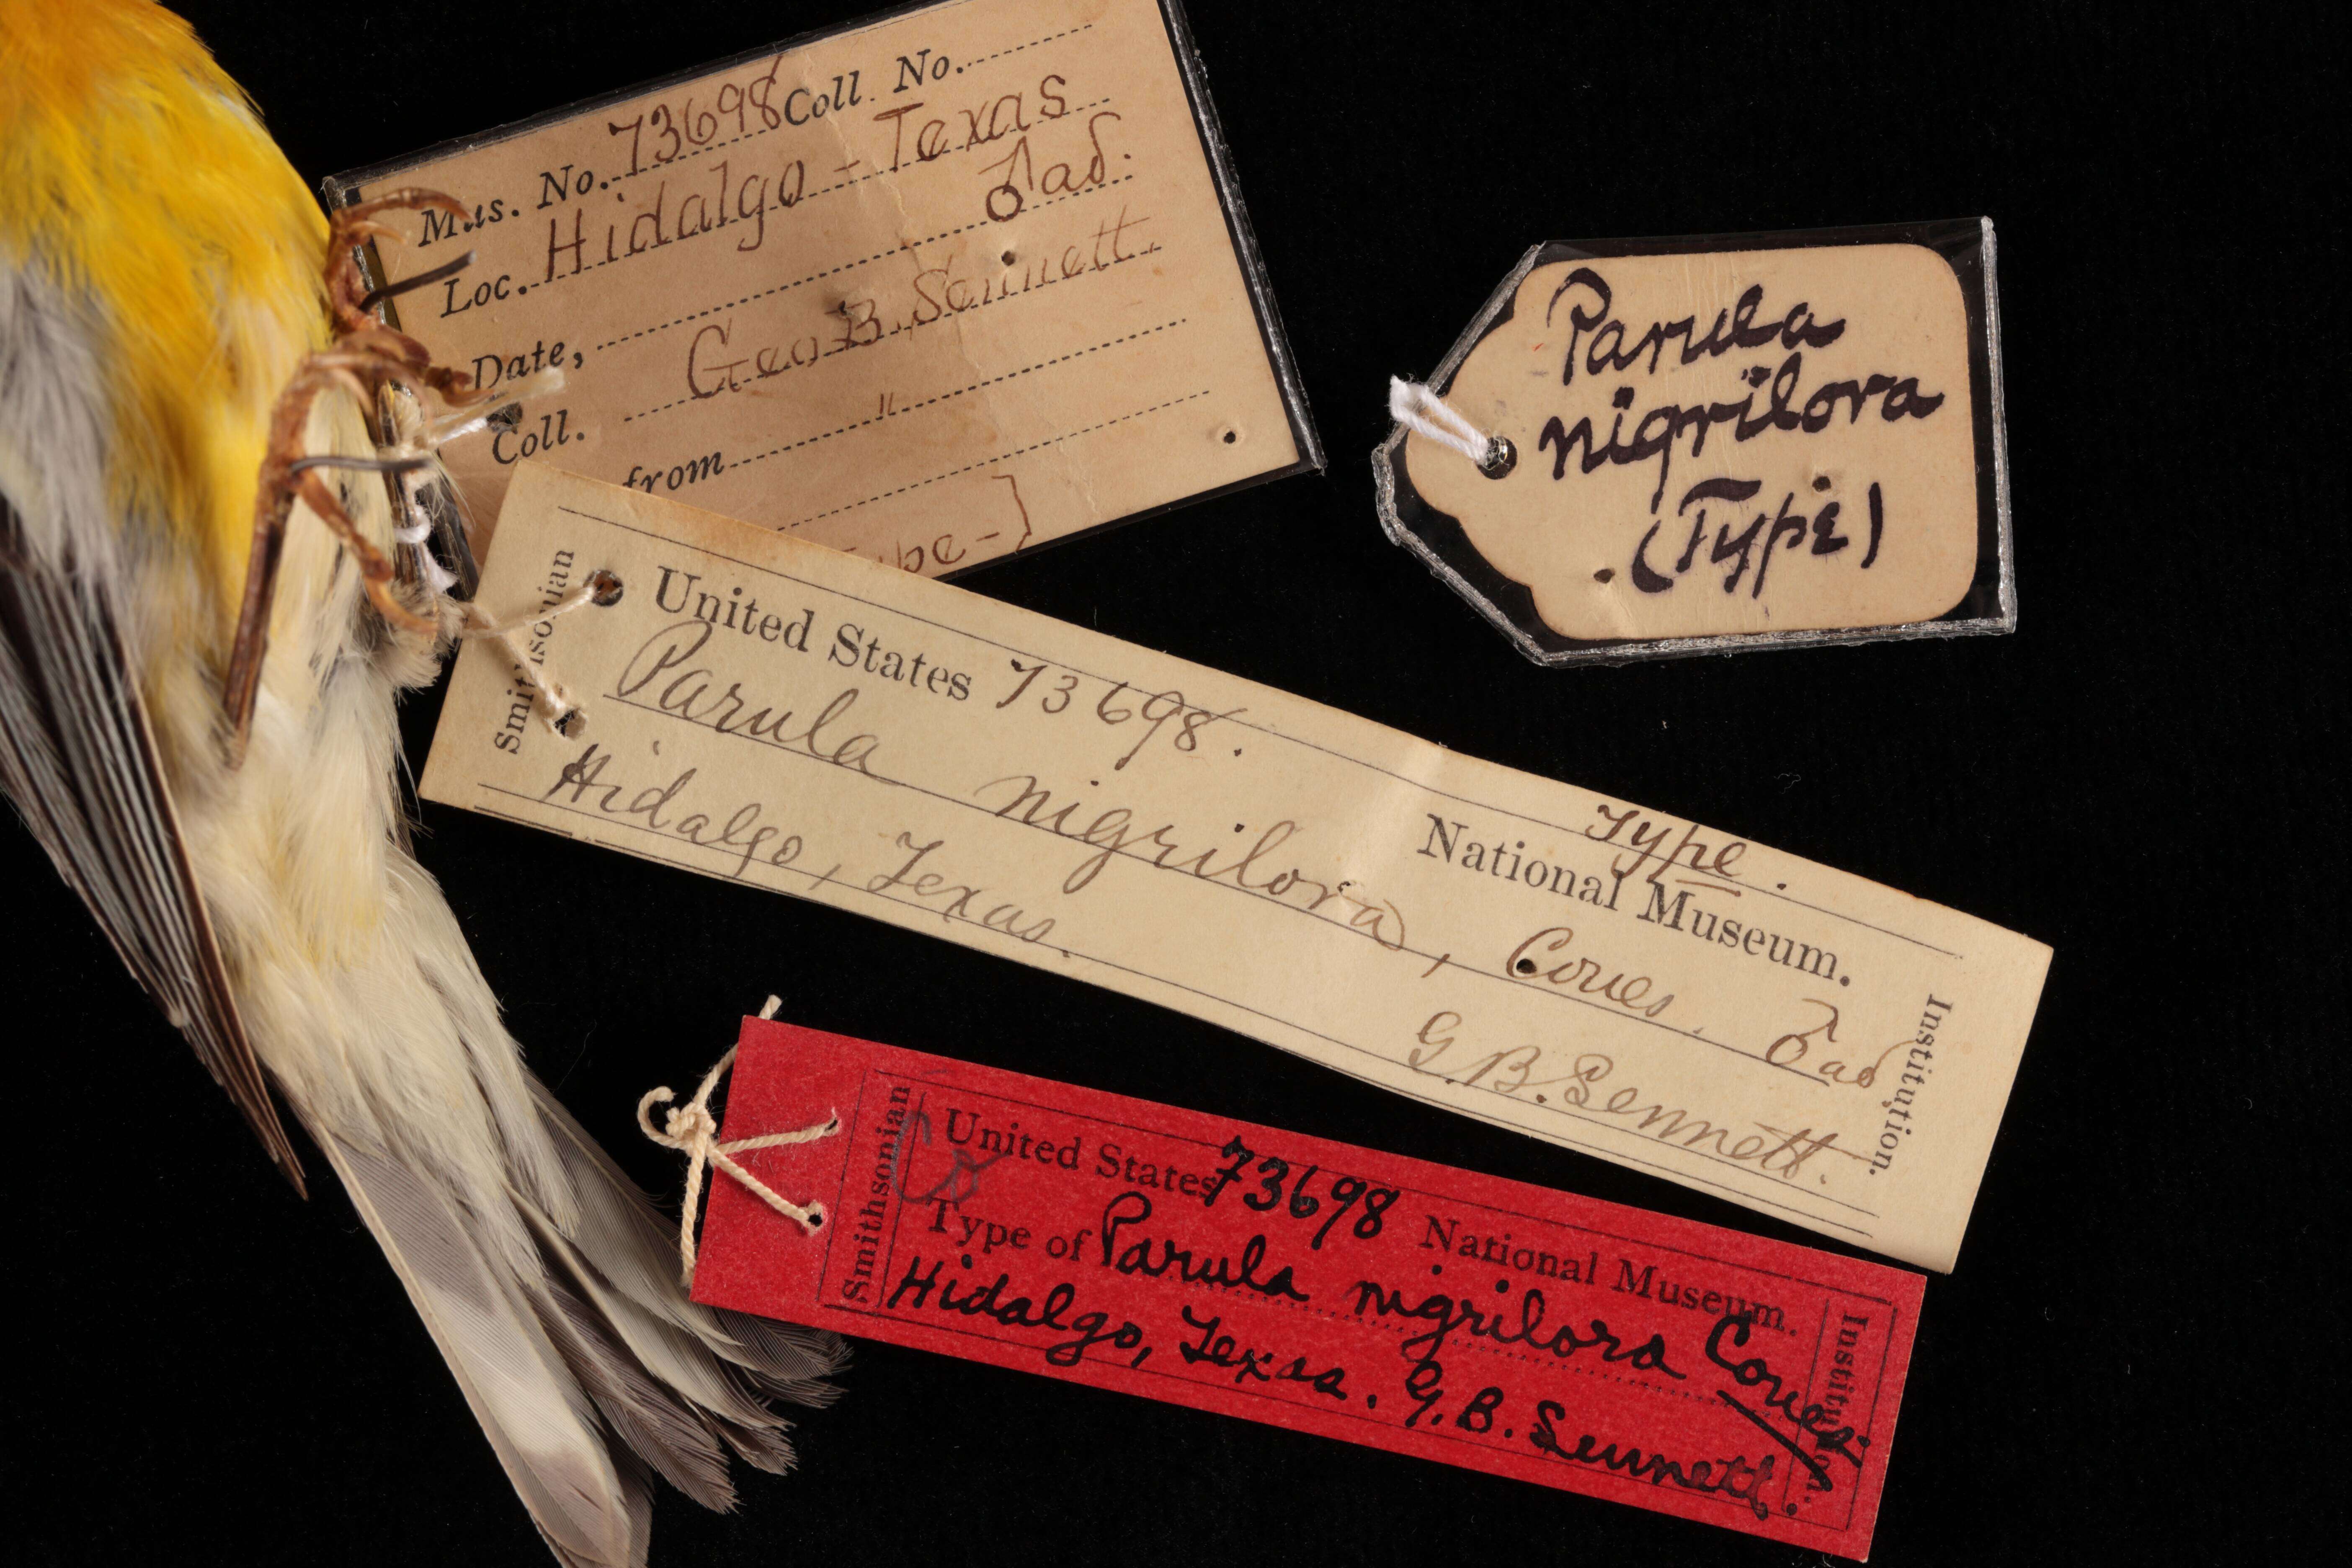 Mus. No. 73698 Coll. No.
Loc. Hidalgo - Texas
♂ ad.
Date,
Coll. Geo. B. Sennett.
from "
ype-]
Parula
nigrilora
(Type)
Smithsonian
United States 73698. Type.
National Museum.
Parula nigrilora, Coues. ♂ ad
Hidalgo, Texas. G. B. Sennett.
Institution.
Smithsonian
United States 73698 National Museum.
Type of Parula nigrilora Coues.
Hidalgo, Texas. G. B. Sennett.
Institution.